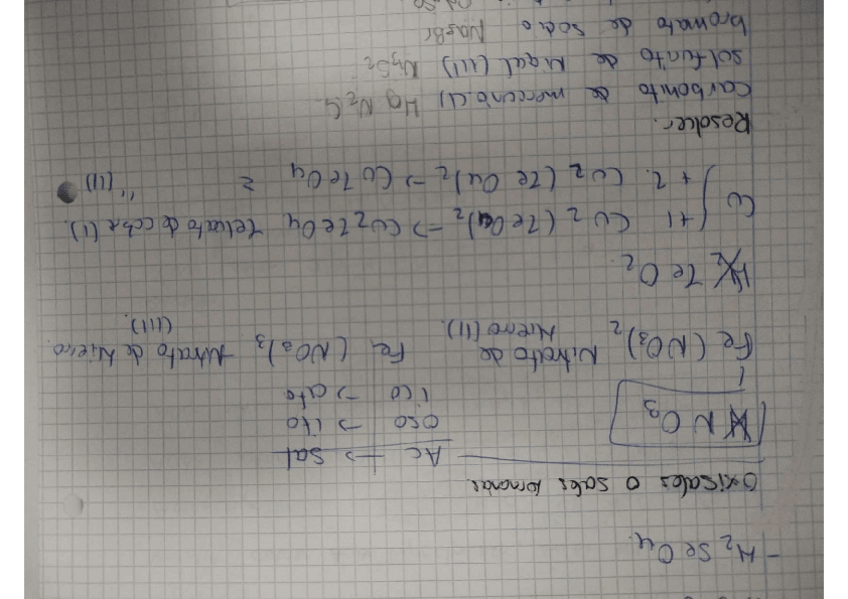 - H₂SeO₄
Oxisales o sales ternarias.
Ac → Sal
oso → ito
ico → ato
HNO₃
Fe(NO₃)₂ Nitrato de Hierro (II). Fe(NO₃)₃ Nitrato de hierro (III).
H₂TeO₂.
Cu +1 Cu₂(TeO₄)₂ → Cu₂TeO₄ Telurato de cobre (I).
+2. Cu₂(TeO₄)₂ → CuTeO₄ = " (II)
Resolver.
Carbonito de mercurio (I)
sulfurito de Niquel (III)
bromato de sodio Na₂Br